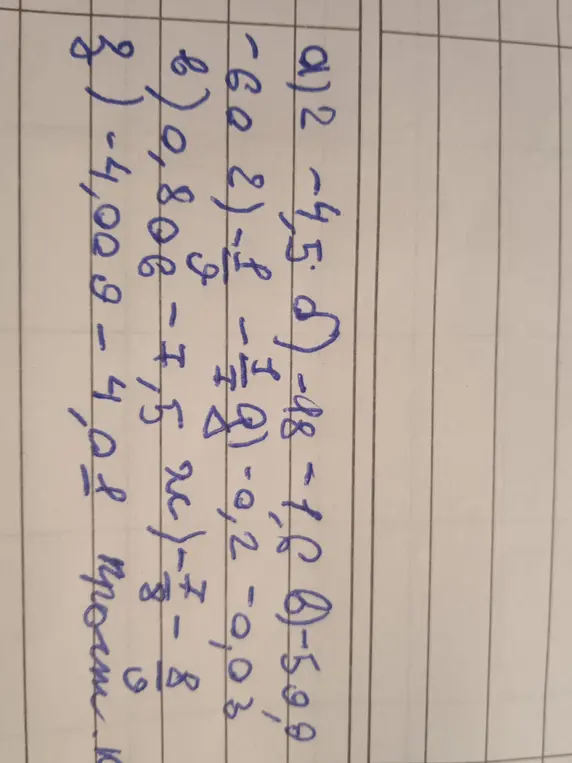 а) 2 -4,5. б) -18 -1,6 в) -59,9
-60 г) -1/9 -1/7 д) -0,2 -0,03
е) 0,806 -7,5 ж) -7/8 - 8/9
з) -4,009 - 4,01